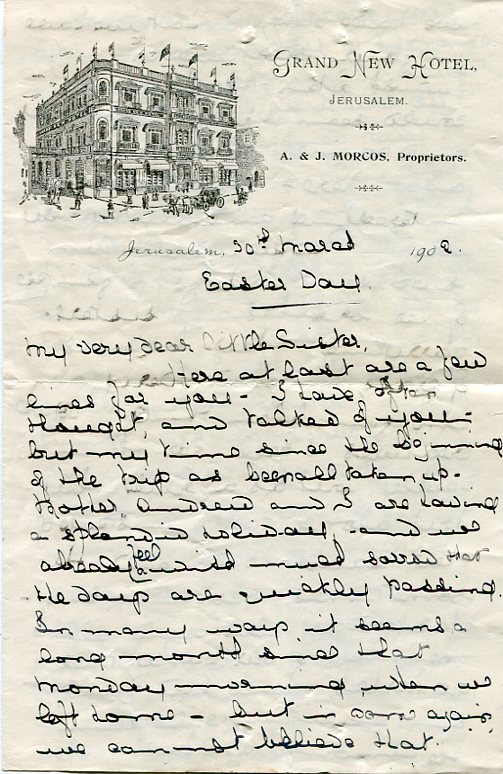 GRAND NEW HOTEL,
JERUSALEM.
A. & J. MORCOS, Proprietors.
Jerusalem, 30th March 1902.
Easter Day.
My very dear Little Sister,
Here at last are a few
lines for you - I have often
thought, and talked of you -
but my time since the beginning
of the trip as been all taken up -
Mother, Andrew and I are having
a splendid holiday, - and we
already feel with much sorrow that
the days are quickly passing.
In many ways it seems a
long month since that
Monday morning when we
left home - but in some again
we can not believe that